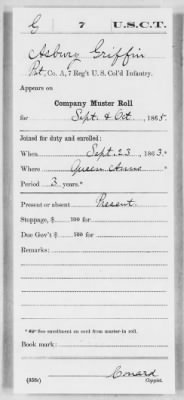 G 7 U.S.C.T.
Asbury Griffin
Pvt, Co. A, 7 Reg't U. S. Col'd Infantry.
Appears on
Company Muster Roll
for Sept. & Oct, 1865.
Joined for duty and enrolled:
When Sept. 23, 1863.*
Where Queen Anne *
Period 3 years.*
Present or absent Present.
Stoppage, $ 100 for
Due Gov't $ 100 for
Remarks:
* See enrollment on card from muster-in roll.
Book mark:
(858c) Conard
Copyist.